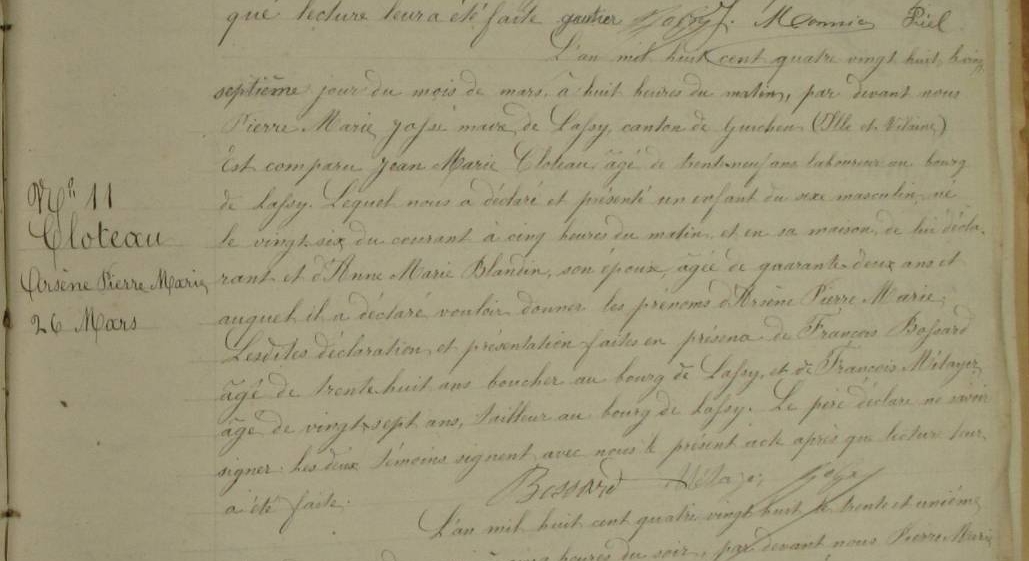 que lecture leur a été faite gautier Josse Monnier Piel
L'an mil huit cent quatre vingt huit, le vingt
septième jour du mois de mars, à huit heures du matin, par devant nous
Pierre Marie Josse maire de Lassy, canton de Guichen (Ille et Vilaine)
Est comparu Jean Marie Cloteau, âgé de trente-neuf ans laboureur au bourg
de Lassy. Lequel nous a déclaré et présenté un enfant du sexe masculin, né
le vingt six du courant à cinq heures du matin, et en sa maison, de lui décla-
rant et d'Anne Marie Blandin, son épouse, âgée de quarante-deux ans et
auquel il a déclaré vouloir donner les prénoms d'Arsène Pierre Marie.
Lesdites déclaration et présentation faites en présence de François Bossard
âgé de trente huit ans boucher au bourg de Lassy, et de François Métayer
âgé de vingt-sept ans, tailleur au bourg de Lassy. Le père déclare ne savoir
signer. Les deux témoins signent avec nous le présent acte après que lecture leur
a été faite. Bossard Métayer Josse
N° 11
Cloteau
Arsène Pierre Marie
26 Mars
L'an mil huit cent quatre vingt huit le trente et unième
heures du soir, par devant nous Pierre Marie